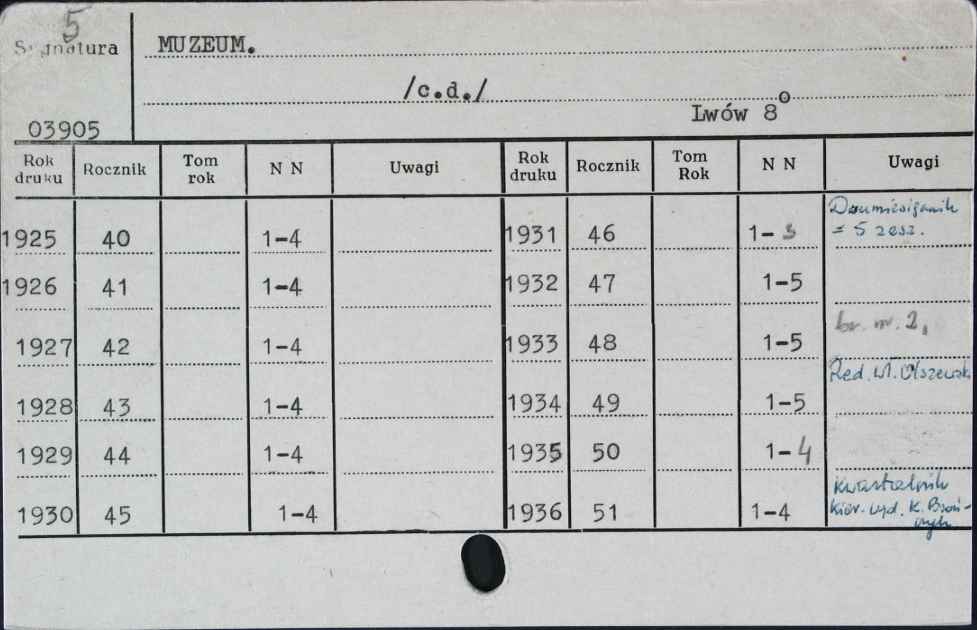 5
Sygnatura MUZEUM.
/c.d./
Lwów 8º
03905
Rok druku Rocznik Tom rok N N Uwagi Rok druku Rocznik Tom Rok N N Uwagi
1925 40 1-4 1931 46 1-3 Dwumiesięcznik = 5 zesz.
1926 41 1-4 1932 47 1-5
1927 42 1-4 1933 48 1-5 br. nr. 2,
1928 43 1-4 1934 49 1-5 Red. Wł. Olszewski
1929 44 1-4 1935 50 1-4
1930 45 1-4 1936 51 1-4 Kwartalnik Kier. wyd. K.